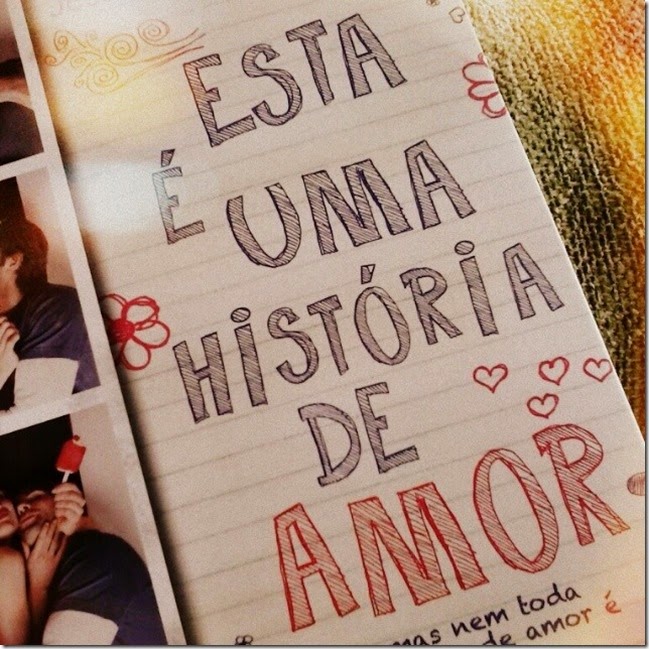 ESTA
É UMA
HISTÓRIA
DE
AMOR
mas nem toda
de amor é